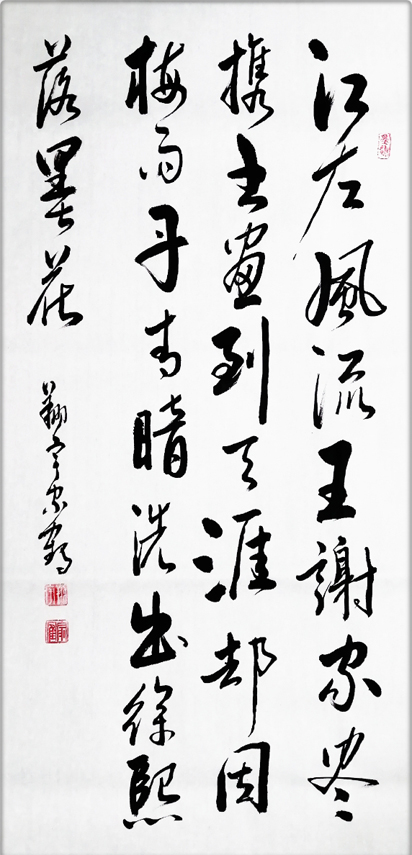 江左風流王謝家尽
携书畫到天涯却因
梅雨丹青暗洗出徐熙
落墨花